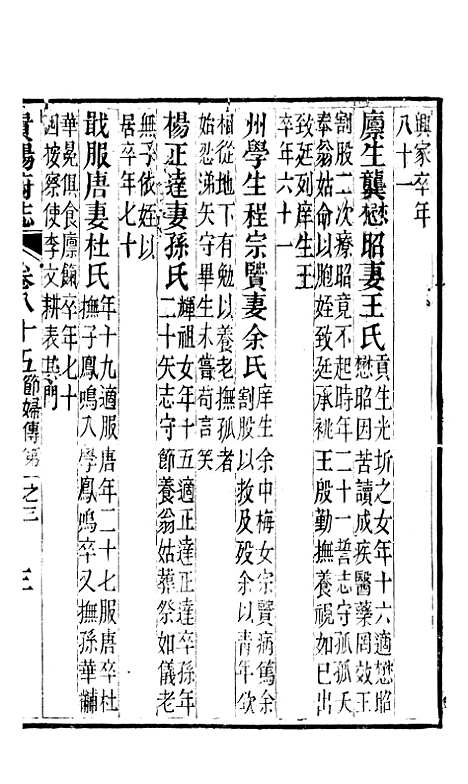 興家卒年
八十一
廪生龔懋昭妻王氏貢生光圻之女年十六適懋昭
懋昭因苦讀成疾醫藥罔效王
割股二次療昭竟不起時年二十一誓志守孤孤夭
奉翁姑命以胞姪毓延承祧王殷勤撫養視如已出
致延列庠生王
卒年六十一
州學生程宗贒妻余氏庠生余中梅女宗贒病篤余
割股以救及殁余以青年欲
相從地下有勉以養老撫孤者
始忍涕矢守畢生未嘗苟言笑
楊正達妻孫氏輝祖女年十五適正達正達卒孫年
二十矢志守節養翁姑葬祭如儀老
無子依姪以
居卒年七十
戢服唐妻杜氏年十九適服唐年二十七服唐卒杜
撫子鳳鳴入學鳳鳴卒又撫孫華黼
華冕俱食廪餼卒年七十
按察使李文耕表其門
貴陽府志
卷八十五
節婦傳第 之三
三